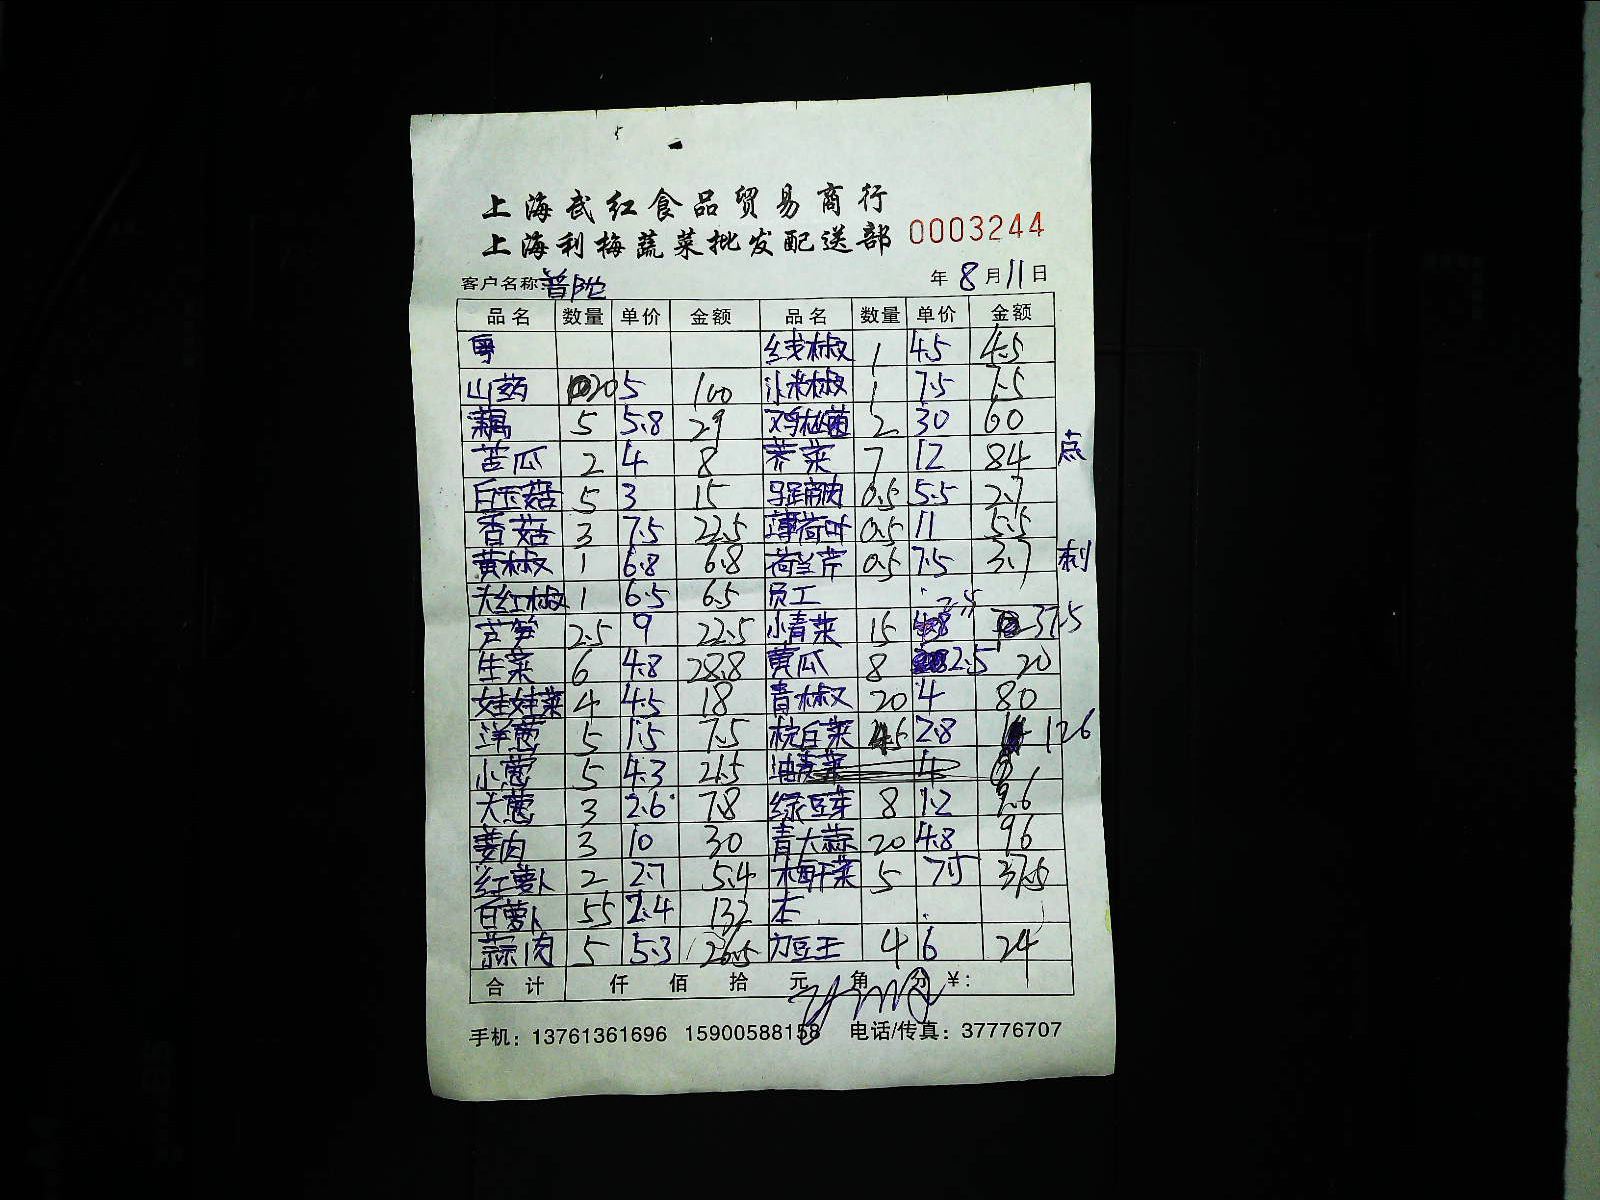 上海武红食品贸易商行
上海利梅蔬菜批发配送部 0003244
客户名称:普陀 年8月11日
品名 数量 单价 金额 品名 数量 单价 金额
粤 线椒 1 4.5 4.5
山药 20 5 100 小米椒 1 7.5 7.5
藕 5 5.8 29 鸡枞菌 2 30 60
苦瓜 2 4 8 荠菜 7 12 84 点
白玉菇 5 3 15 马蹄肉 0.5 5.5 2.7
香菇 3 7.5 22.5 薄荷叶 0.5 11 5.5
黄椒 1 6.8 6.8 荷兰芹 0.5 7.5 3.7 刺
大红椒 1 6.5 6.5 员工
芦笋 2.5 9 22.5 小青菜 15 2.5 37.5
生菜 6 4.8 28.8 黄瓜 8 2.5 20
娃娃菜 4 4.5 18 青椒 20 4 80
洋葱 5 1.5 7.5 梡白菜 45 2.8 126
小葱 5 4.3 21.5 油麦菜 4
大葱 3 2.6 7.8 绿豆芽 8 1.2 9.6
姜肉 3 10 30 青大蒜 20 4.8 96
红萝卜 2 2.7 5.4 梅干菜 5 7.5 37.5
白萝卜 55 2.4 132 本
蒜肉 5 5.3 26.5 刀豆王 4 6 24
合计 仟 佰 拾 元 角 分 ¥:
手机: 13761361696 15900588158 电话/传真: 37776707